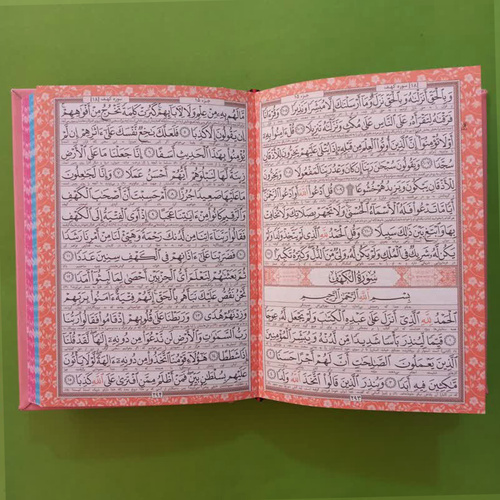 وَبِالْحَقِّ أَنزَلْنَاهُ وَبِالْحَقِّ نَزَلَ وَمَا أَرْسَلْنَاكَ إِلَّا مُبَشِّرًا وَنَذِيرًا ﴿١٠٥﴾ وَقُرْءَانًا
فَرَقْنَاهُ لِتَقْرَأَهُ عَلَى النَّاسِ عَلَى مُكْثٍ وَنَزَّلْنَاهُ تَنزِيلًا ﴿١٠٦﴾ قُلْ ءَامِنُوا بِهِ
أَوْ لَا تُؤْمِنُوا إِنَّ الَّذِينَ أُوتُوا الْعِلْمَ مِن قَبْلِهِ إِذَا يُتْلَى عَلَيْهِمْ يَخِرُّونَ لِلْأَذْقَانِ
سُجَّدًا ﴿١٠٧﴾ وَيَقُولُونَ سُبْحَانَ رَبِّنَا إِن كَانَ وَعْدُ رَبِّنَا لَمَفْعُولًا ﴿١٠٨﴾ وَيَخِرُّونَ
لِلْأَذْقَانِ يَبْكُونَ وَيَزِيدُهُمْ خُشُوعًا ﴿١٠٩﴾ قُلِ ادْعُوا اللَّهَ أَوِ ادْعُوا الرَّحْمَٰنَ
أَيًّا مَّا تَدْعُوا فَلَهُ الْأَسْمَاءُ الْحُسْنَى وَلَا تَجْهَرْ بِصَلَاتِكَ وَلَا تُخَافِتْ
بِهَا وَابْتَغِ بَيْنَ ذَٰلِكَ سَبِيلًا ﴿١١٠﴾ وَقُلِ الْحَمْدُ لِلَّهِ الَّذِي لَمْ يَتَّخِذْ وَلَدًا وَلَمْ
يَكُن لَّهُ شَرِيكٌ فِي الْمُلْكِ وَلَمْ يَكُن لَّهُ وَلِيٌّ مِّنَ الذُّلِّ وَكَبِّرْهُ تَكْبِيرًا ﴿١١١﴾
سُورَةُ الْكَهْفِ
بِسْمِ اللَّهِ الرَّحْمَٰنِ الرَّحِيمِ
الْحَمْدُ لِلَّهِ الَّذِي أَنزَلَ عَلَى عَبْدِهِ الْكِتَابَ وَلَمْ يَجْعَل لَّهُ عِوَجًا ﴿١﴾
قَيِّمًا لِّيُنذِرَ بَأْسًا شَدِيدًا مِّن لَّدُنْهُ وَيُبَشِّرَ الْمُؤْمِنِينَ
الَّذِينَ يَعْمَلُونَ الصَّالِحَاتِ أَنَّ لَهُمْ أَجْرًا حَسَنًا ﴿٢﴾
مَّاكِثِينَ فِيهِ أَبَدًا ﴿٣﴾ وَيُنذِرَ الَّذِينَ قَالُوا اتَّخَذَ اللَّهُ وَلَدًا ﴿٤﴾
٢٩٣
مَّا لَهُم بِهِ مِنْ عِلْمٍ وَلَا لِآبَائِهِمْ كَبُرَتْ كَلِمَةً تَخْرُجُ مِنْ أَفْوَاهِهِمْ
إِن يَقُولُونَ إِلَّا كَذِبًا ﴿٥﴾ فَلَعَلَّكَ بَاخِعٌ نَّفْسَكَ عَلَى ءَاثَارِهِمْ إِن لَّمْ
يُؤْمِنُوا بِهَٰذَا الْحَدِيثِ أَسَفًا ﴿٦﴾ إِنَّا جَعَلْنَا مَا عَلَى الْأَرْضِ
زِينَةً لَّهَا لِنَبْلُوَهُمْ أَيُّهُمْ أَحْسَنُ عَمَلًا ﴿٧﴾ وَإِنَّا لَجَاعِلُونَ
مَا عَلَيْهَا صَعِيدًا جُرُزًا ﴿٨﴾ أَمْ حَسِبْتَ أَنَّ أَصْحَابَ الْكَهْفِ
وَالرَّقِيمِ كَانُوا مِنْ ءَايَاتِنَا عَجَبًا ﴿٩﴾ إِذْ أَوَى الْفِتْيَةُ إِلَى الْكَهْفِ
فَقَالُوا رَبَّنَا ءَاتِنَا مِن لَّدُنكَ رَحْمَةً وَهَيِّئْ لَنَا مِنْ أَمْرِنَا رَشَدًا ﴿١٠﴾
فَضَرَبْنَا عَلَى ءَاذَانِهِمْ فِي الْكَهْفِ سِنِينَ عَدَدًا ﴿١١﴾
ثُمَّ بَعَثْنَاهُمْ لِنَعْلَمَ أَيُّ الْحِزْبَيْنِ أَحْصَى لِمَا لَبِثُوا أَمَدًا ﴿١٢﴾
نَّحْنُ نَقُصُّ عَلَيْكَ نَبَأَهُم بِالْحَقِّ إِنَّهُمْ فِتْيَةٌ ءَامَنُوا بِرَبِّهِمْ
وَزِدْنَاهُمْ هُدًى ﴿١٣﴾ وَرَبَطْنَا عَلَى قُلُوبِهِمْ إِذْ قَامُوا فَقَالُوا رَبُّنَا
رَبُّ السَّمَاوَاتِ وَالْأَرْضِ لَن نَّدْعُوَ مِن دُونِهِ إِلَٰهًا لَّقَدْ قُلْنَا
إِذًا شَطَطًا ﴿١٤﴾ هَٰؤُلَاءِ قَوْمُنَا اتَّخَذُوا مِن دُونِهِ ءَالِهَةً لَّوْلَا يَأْتُونَ
عَلَيْهِم بِسُلْطَانٍ بَيِّنٍ فَمَنْ أَظْلَمُ مِمَّنِ افْتَرَى عَلَى اللَّهِ كَذِبًا ﴿١٥﴾
٢٩٤